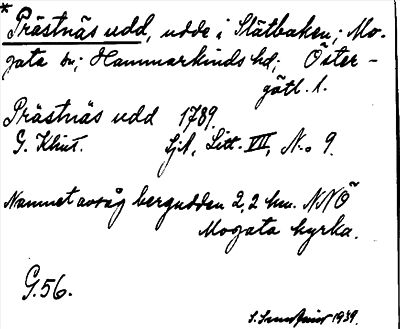 * Prästnäs udd, udde i Slätbaken; Mo-
gata sn; Hammarkinds hd; Öster-
götl. l.
Prästnäs udd 1789.
G. Klint. Sjk, Litt. VII, No 9.
Namnet avsåg bergudden 2,2 km. NNÖ
Mogata kyrka.
G.56.
1939.